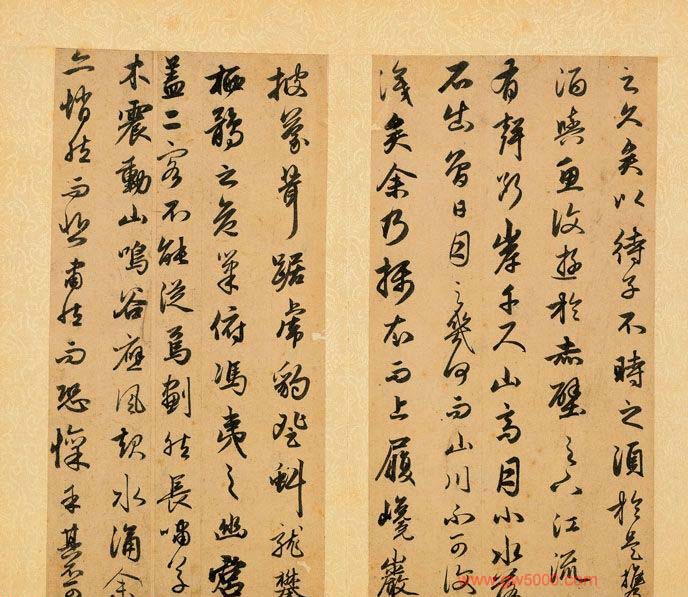 之久矣以待子不時之須於是攜
酒與魚復遊於赤壁之下江流
有聲斷岸千尺山高月小水落
石出曾日月之幾何而山川不可復
識矣余乃攝衣而上履巉巖
披蒙茸踞虎豹登虯龍攀
栖鶻之危巢俯馮夷之幽宮
蓋二客不能從焉劃然長嘯草
木震動山鳴谷應風起水涌余
亦悄然而悲肅然而恐懍乎其不可